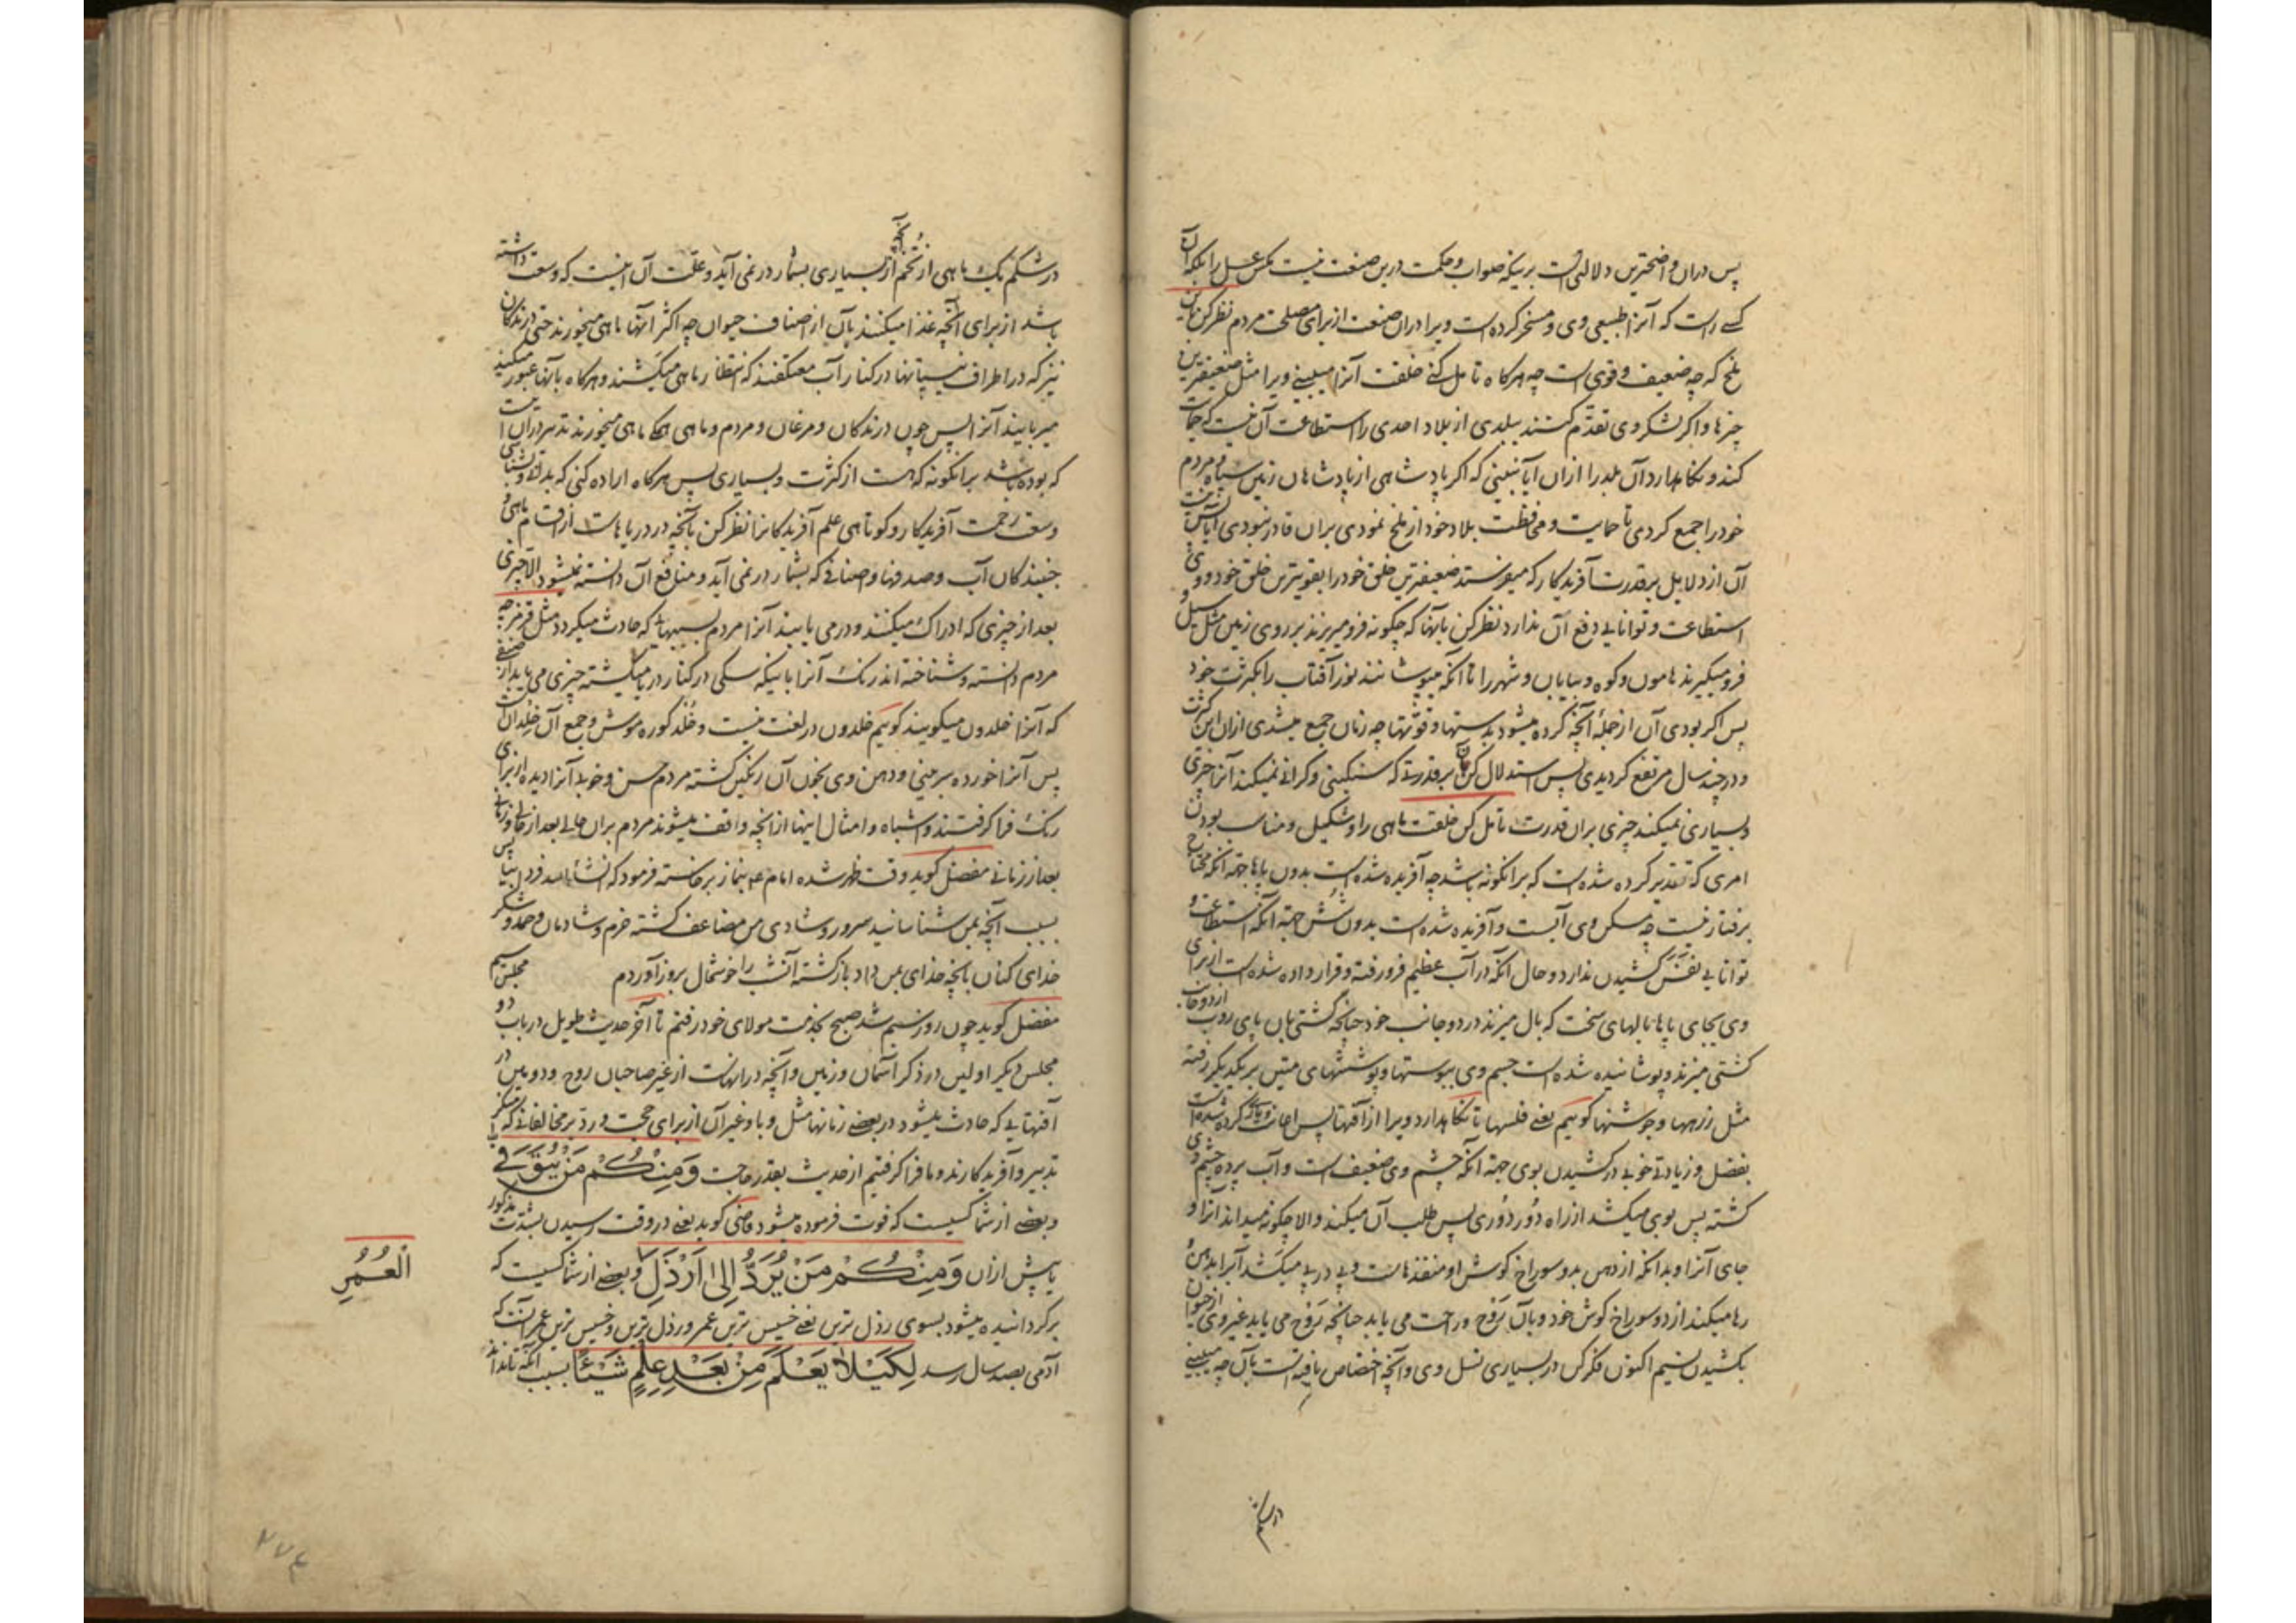 پس دران واضحترین دلالتی است برینکه صواب و حکمت درین صنعت نیست مکس عسل را بلکه آن
کسے راست که آنرا طبیعی وی و مسخر کرده است ویرا دران صنعت از برای مصلحت مردم نظر کن باین
ملخ که چه ضعیف و قوی است چه هرکاه تامل کنی خلقت آنرا میبینے ویرا مثل ضعیفترین
چیزها و اکر لشکر وی تقدّم کنند ببلدی از بلاد احدی را استطاعت آن نیست که حمایت
کند و نکاهدارد آن بلد را ازان آیا نبینی که اکر پادشاهی از پادشاهان زمین سپاه و مردم
خود را جمع کردی تا حمایت و محافظت بلاد خود از ملخ نمودی بران قادر نبودی آیا پس نیست
آن از دلایل بر قدرت آفریدکار که میفرستد ضعیفترین خلق خود را بقویترین خلق خود و وی
استطاعت و توانایی دفع آن ندارد نظر کن بآنها که چکونه فرو میریزند بر روی زمین مثل سیل و
فرو میکیرند هامون و کوه و بیابان و شهر را تا آنکه میپوشانند نور آفتاب را بکثرت خود
پس اکر بودی آن از جملهٔ آنچه کرده میشود بدستها و قوّتها چه زمان جمع میشدی ازان این کثرت
و در چند سال مرتفع کردیدی پس استدلال کن بآن بر قدرتے که سنکینی و کرانی نمیکند آنرا چیزی
و بسیاری نمیکند چیزی بران قدرت تامل کن خلقت ماهی را و شکیل و مناسب بودن
امری که تقدیر کرده شده است که برانکونه باشد چه آفریده شده است بدون پاها جهة آنکه محتاج
برفتار نیست چه مسکن وی آبست و آفریده شده است بدون شش جهة آنکه استطاعت و
توانایی نفس کشیدن ندارد و حال آنکه در آب عظیم فرو رفته و قرار داده شده است از برای
وی بجای پاها بالهای سخت که بال میزند در دو جانب خود چنانچه کشتی بان پای روب از دو جانب
کشتی میزند و پوشانیده شده است جسم وی بپوستها و پوششهای متین بر یکدیکر رفته
مثل زرهها و جوشنها کوییم یعنی فلسها تا نکاهدارد ویرا از آفتها پس اعانت و یاری کرده شده است
بفضل و زیادتی خوبی در کشیدن بوی جهة آنکه چشم وی ضعیف است و آب پرده چشم وی
کشته پس بوی میکشد از راه دور دوری پس طلب آن میکند والا چکونه میداند آنرا و
جای آنرا و بدانکه از دهن بدو سوراخ کوش او منفذهاست و پی در پی میکشد آبرا بدهن و
رها میکند از دو سوراخ کوش خود و بآن روح و راحت می یابد چنانچه روح می یابد غیر وی از حیوان
بکشیدن نسیم اکنون فکر کن در بسیاری نسل وی و آنچه اختصاص یافته است بآن چه میبینے
در شکم
در شکم یک ماهی از تخم آنچه از بسیاری بشمار در نمی آید و علّت آن اینست که وسعت داشته
باشد از برای آنچه غذا میکنند بآن از اصناف حیوان چه اکثر آنها ماهی میخورند حتی درندکان
نیز که در اطراف نیستانها در کنار آب معتکفند که انتظار ماهی میکشند و هرکاه بآنها عبور میکند
میربایند آنرا پس چون درندکان و مرغان و مردم و ماهی همکی ماهی میخورند تدبیر دران اینست
که بوده باشد برانکونه که هست از کثرت و بسیاری پس هرکاه اراده کنی که بدانی و بشناسی
وسعت رحمت آفریدکار و کوتاهی علم آفریدکانرا نظر کن بآنچه در دریاهاست از اقسام ماهی و
جنبندکان آب و صدفها و اصنافی که بشمار در نمی آید و منافع آن دانسته نمیشود الا چیزی
بعد از چیزی که ادراک میکنند و درمی یابند آنرا مردم بسببهایی که حادث میکردد مثل قرمز چه
مردم دانسته و شناخته اند رنک آنرا باینکه سکی در کنار دریا میکشته چیزی می یابد از صنفی
که آنرا خلدون میکویند کوییم خلدون در لغت نیست و خُلد کوره موش و جمع آن خِلدان است
پس آنرا خورده بر بینی و دهن وی بخون آن رنکین کشته مردم حسن و خوبی آنرا دیده از برای
رنک فرا کرفتند و اشباه و امثال اینها از آنچه واقف میشوند مردم بران حالی بعد از حالی و زمانی
بعد از زمانی مفضل کوید وقت ظهر شده امام ع بنماز برخاسته فرمود که انشاءالله فردا بیا پس
بسبب آنچه بمن شناسانید سرور و شادی من مضاعف کشته خرم و شادمان و حمد و شکر
خدای کنان بآنچه خدای بمن داد بازکشته آنشب را خوشحال بروز آوردم مجلس سیم
مفضل کوید چون روز سیم شد صبح بخدمت مولای خود رفتم تا آخر حدیث طویل در باب دو
مجلس دیکر اولین در ذکر آسمان و زمین و آنچه درانهاست از غیر صاحبان روح و دویمین در
آفتهایی که حادث میشود در بعضی زمانها مثل وبا و غیر آن از برای حجت و رد بر مخالفانی که منکر
تدبیر و آفریدکارند و ما فرا کرفتیم از حدیث بقدر حاجت وَمِنْكُمْ مَنْ يُتَوَفَّى
و بعضی از شما کسیست که فوت فرموده میشود قاضی کوید یعنی در وقت رسیدن بشدت مذکور
یا پیش ازان وَمِنْكُمْ مَنْ يُرَدُّ إِلى أَرْذَلِ و بعضی از شما کسیست که
الْعُمُرِ
برکردانیده میشود بسوی رذل ترین یعنی خسیس ترین عمر و رذل ترین و خسیس ترین عمر آنست که
آدمی بصد سال رسد لِكَيْلا يَعْلَمَ مِنْ بَعْدِ عِلْمٍ شَيْئًا بسبب آنکه تا نداند
۷۷۴